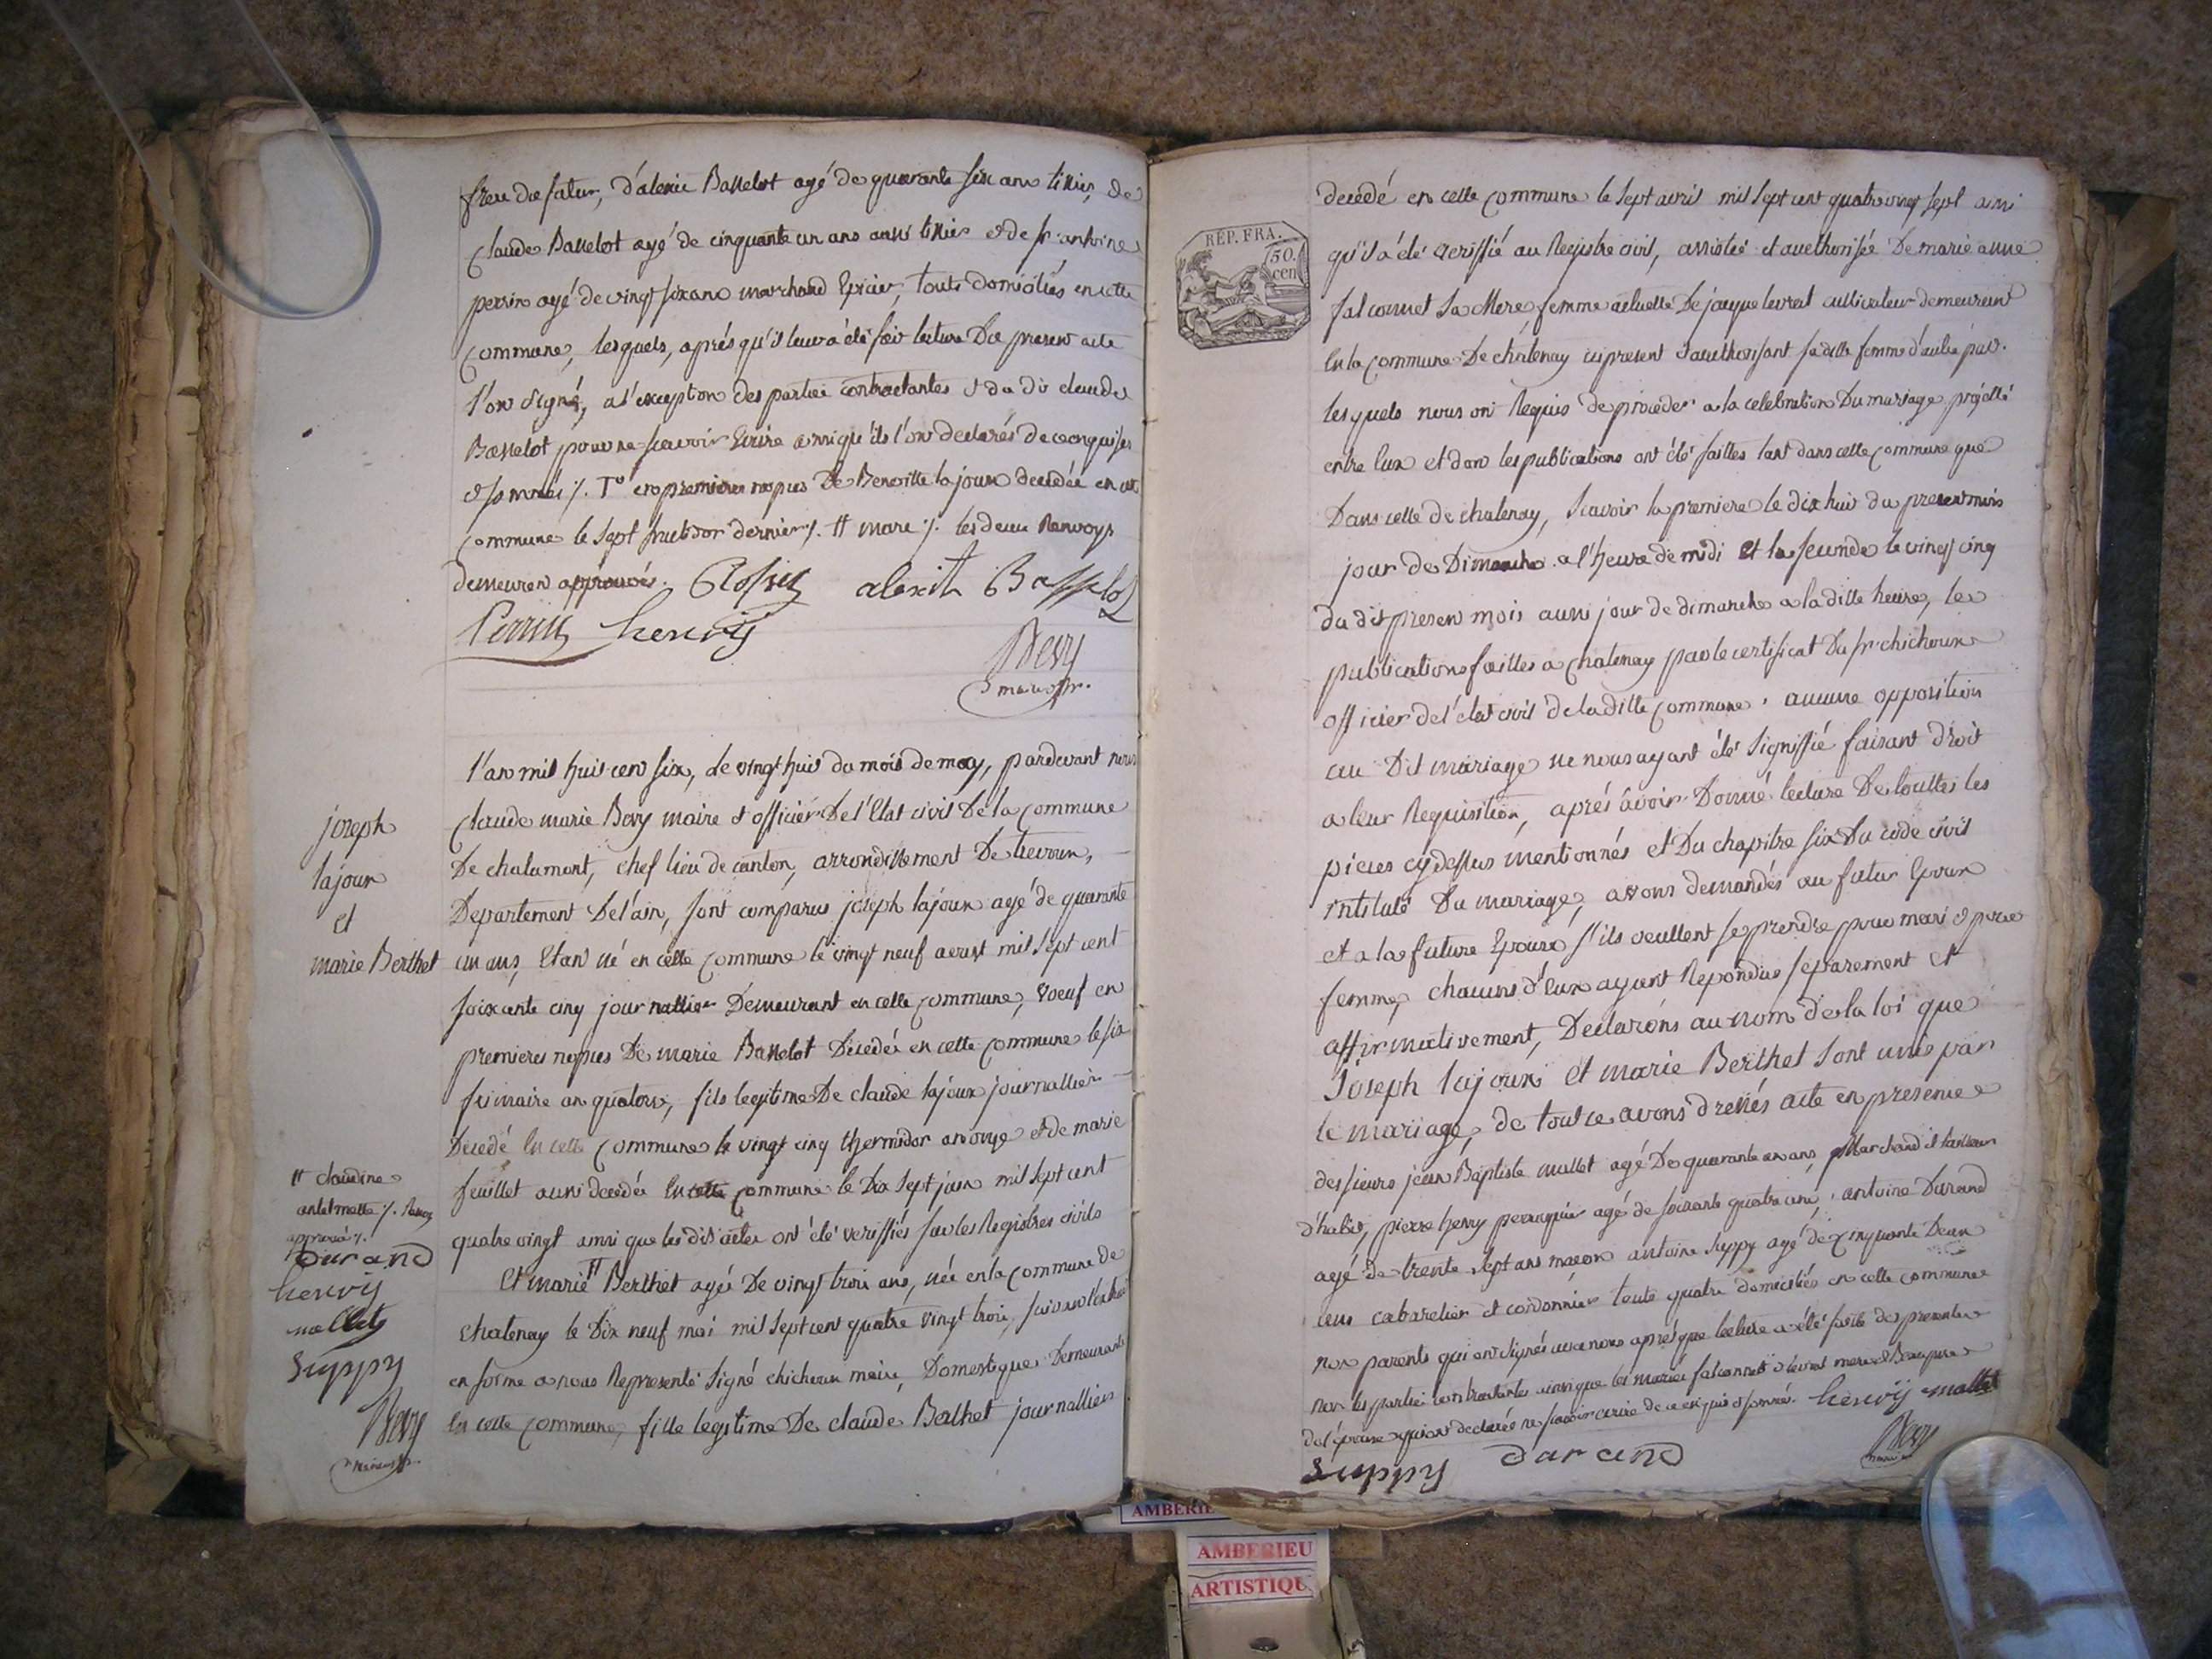 frere du futur, d'alexis Basselot agé de quarante six ans tissier, de
Claude Basselot agé de cinquante un ans aussi tissier et de sr. antoine
perrin agé de vingt six ans marchand Epicier, touts domiciliés en cette
Commune, lesquels, aprés qu'il leur a été fait lecture Du present acte
l'on signé, a l'exception des parties contractantes et du dit claude
Basselot pour ne scavoir Ecrire ainsi qu'ils l'on declarés de ce enquis
et sommés ·/. To en premieres nopces De Benoitte lajoux decedée en cette
Commune le sept fructidor dernier ·/. # mare ·/. les deux Renvoys
demeuren approuvés.
alexit Basselot
Perrin henrÿ
Bevy
maire
l'an mil huit cent six, le vingt huit du mois de may, pardevant nous
Claude marie Bevy maire et officier De l'Etat civil De la Commune
De chalamont, chef lieu de canton, arrondissement De trevoux,
Departement De l'ain, sont comparus joseph lajoux agé de quarante
un ans, Etan né en cette Commune le vingt neuf aoust mil sept cent
soixante cinq journallier Demeurant en cette Commune, veuf en
premieres nopces De marie Basselot Décédée en cette Commune le six
frimaire an quatorze, fils legitime De claude lajoux journallier
Décedé En cette Commune le vingt cinq thermidor an onze et de marie
feuillet aussi decedée En cette Commune le Dix sept juin mil sept cent
quatre vingt ainsi que les dits actes ont été veriffiés sur les Registres civils
Et marie # Berthet agée De vingt trois ans, née en la Commune de
Chatenay le Dix neuf mai mil sept cent quatre vingt trois, suivant l'extrait
en forme a nous Representé Signé chichoux maire, Domestique Demeurante
En cette Commune, fille legitime De claude Berthet journallier
joseph
lajoux
et
marie Berthet
# claudine
antelmette ·/. Renvoy
approuvé ·/.
durand
henrÿ
mallet
Suppy
Bevy
maire
REP. FRA.
50.
cen
decédé en cette Commune le sept avril mil sept cent quatre vingt sept ainsi
qu'il a été veriffié au Registre civil, assistée et aucthorisée De marie anne
falconnet Sa Mere, femme actuelle De jacque levrat cultivateur demeurant
En la Commune De chatenay ici present et aucthorisant sa ditte femme d'autre part.
lesquels nous ont Requis de proceder a la celebration Du mariage projetté
entre Eux et dont les publications ont été faittes tant dans cette Commune que
Dans celle de chatenay, Scavoir la premiere le dix huit du present mois
jour de Dimanche a l'heure de midi Et la seconde le vingt cinq
du dit present mois aussi jour de dimanche a la ditte heure, les
publications faittes a chatenay par le certificat Du sr. chichoux
officier de l'etat civil de la ditte Commune, aucune opposition
au Dit mariage ne nous ayant été signiffié faisant droit
a leur Requisition, aprés avoir Donné lecture De touttes les
pieces cy dessus mentionnés et Du chapitre six Du code civil
intitulé Du mariage, avons demandés au futur Epoux
et a la future Epouse s'ils veullent se prendre pour mari et pour
femme, chacuns d'Eux ayant Repondus separement et
affirmativement, Declarons au nom de la loi que
joseph lajoux et marie Berthet sont unis par
le mariage, de tout ce avons dressés acte en presence
des sieurs jean Baptiste mallet agé De quarante un ans, Marchand et tailleur
d'habits, pierre henry perruquier agé de soixante quatre ans, antoine Durand
agé de trente sept ans macon antoine Suppy agé de cinquante Deux
ans cabaretier et cordonnier touts quatre domiciliés en cette commune
non parents qui ont signés avec nous aprés que lecture a été faitte des presentes
non les parties contractantes ainsi que les mariés falconnet et levrat mere et Beaupere
de l'épouse qui ont declarés ne scavoir ecrire de ce enquis et sommés. henrÿ mallet
Suppy durand
Bevy
maire
AMBERIEU
AMBERIEU
ARTISTIQU